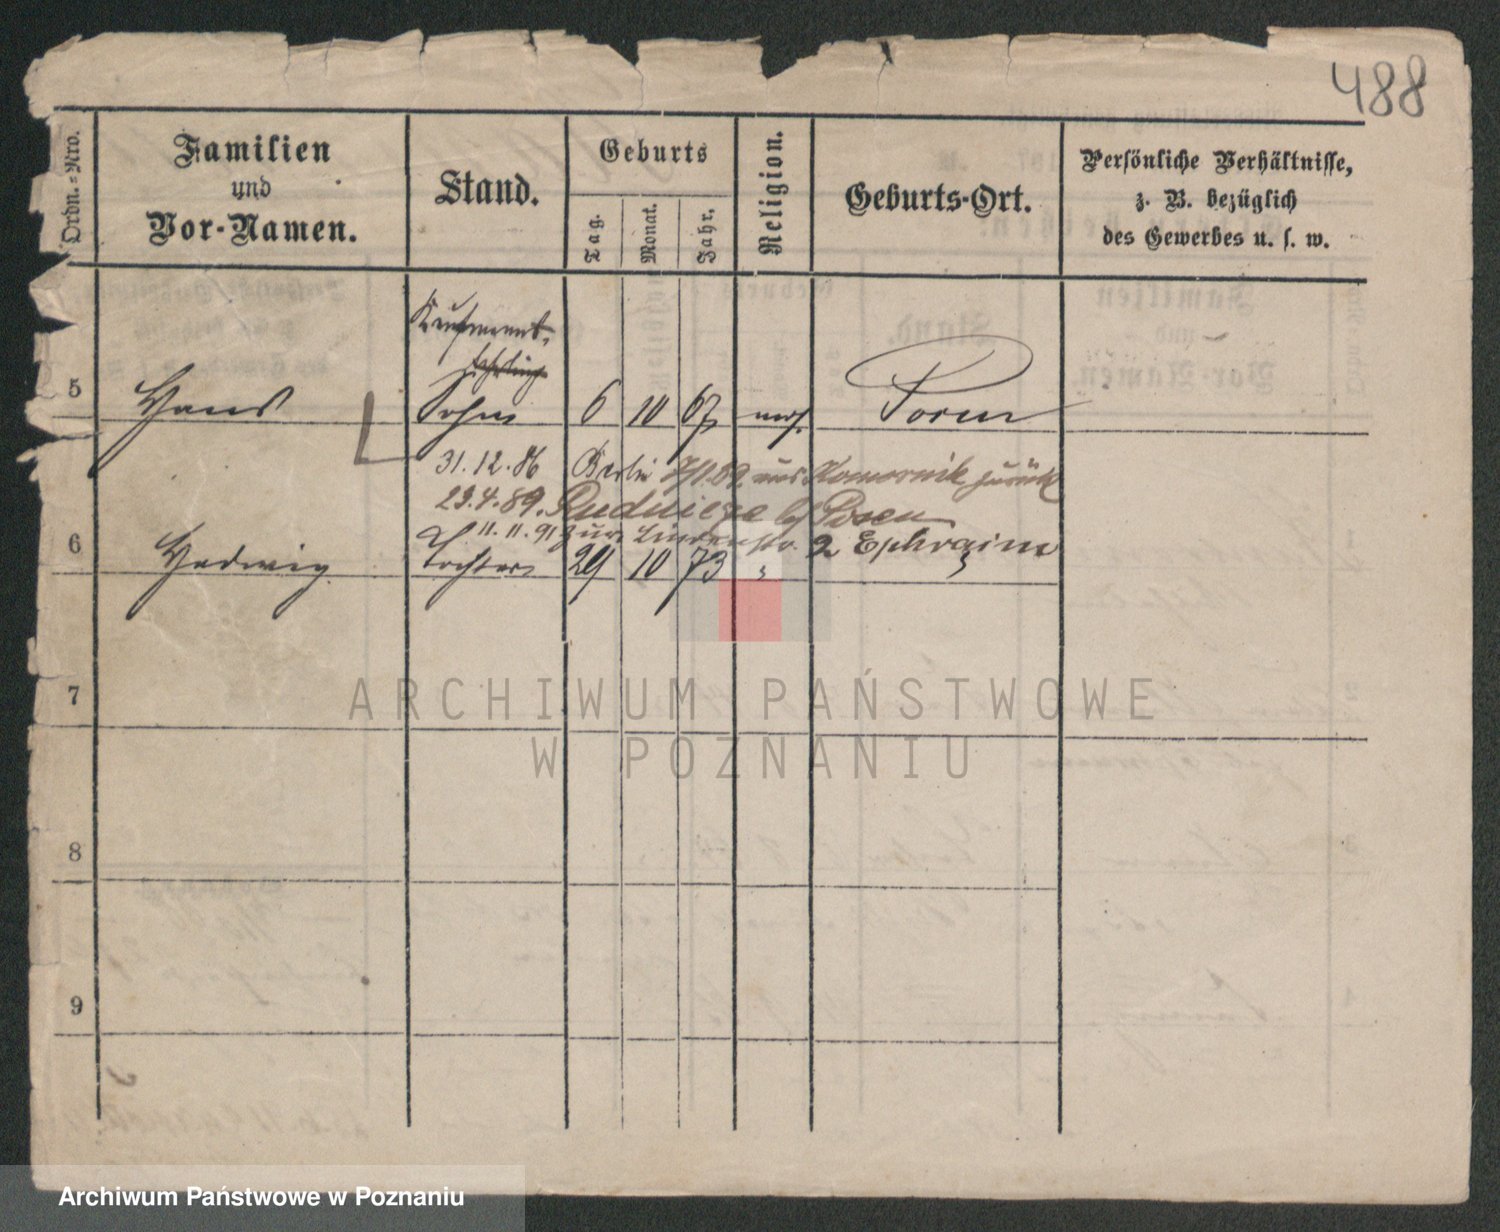 488
Ordn.-Nro.
Familien
und
Vor-Namen.
Stand.
Geburts
Tag.
Monat.
Jahr.
Religion.
Geburts-Ort.
Persönliche Verhältnisse,
z. B. bezüglich
des Gewerbes u. s. w.
Kaufmanns-
Lehrling
5 Hans Sohn 6 10 67 mos. Posen
31.12.86 Berlin 7/1.89 aus Komornik zurück
23.4.89. Rudnicze b/ Posen
11.11.91 zur Lindenstr. 2 Ephraim
6 Hedwig Tochter 29 10 73 "
7
8
9
ARCHIWUM PAŃSTWOWE
W POZNANIU
Archiwum Państwowe w Poznaniu